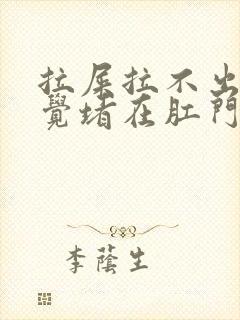 拉屎拉不出
覺堵在肛門
李蔭生